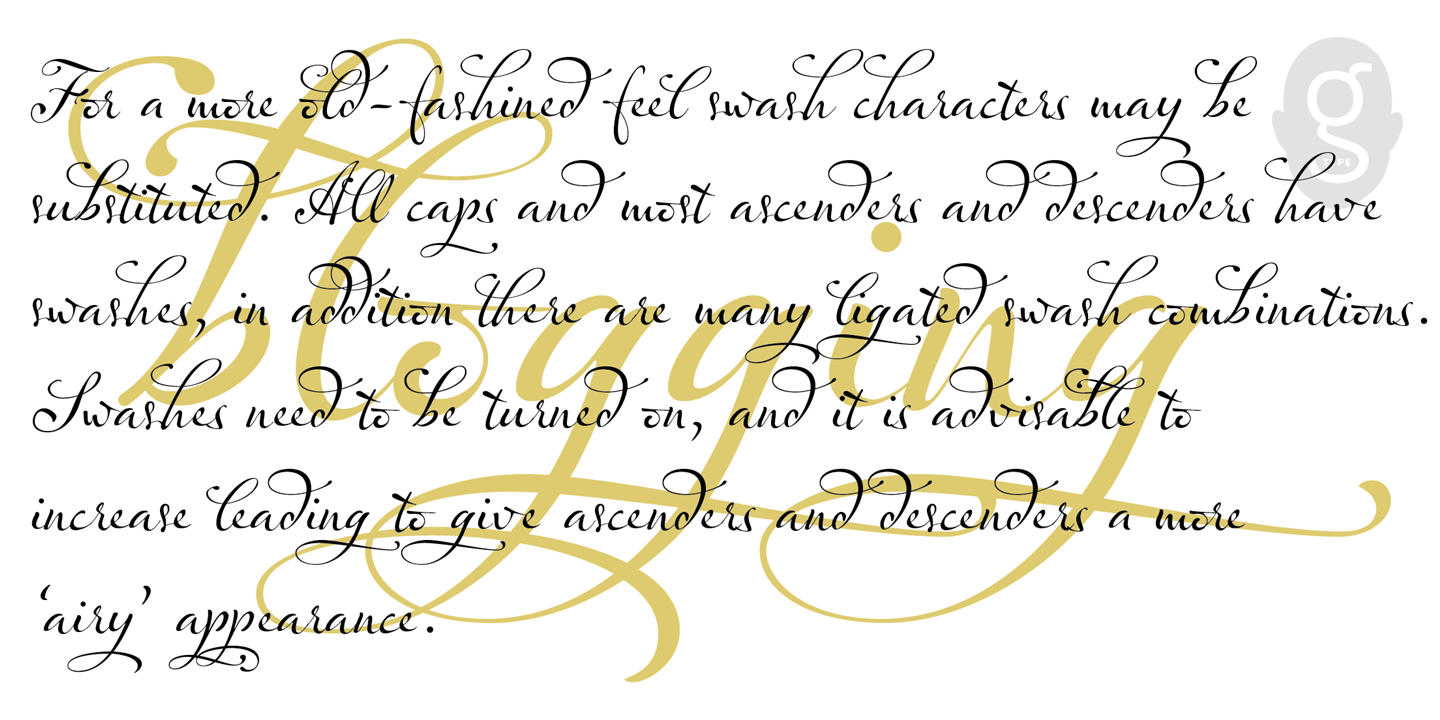 For a more old-fashined feel swash characters may be
substituted. All caps and most ascenders and descenders have
swashes, in addition there are many ligated swash combinations.
Swashes need to be turned on, and it is advisable to
increase leading to give ascenders and descenders a more
‘airy’ appearance.
blogging
g
TYPE